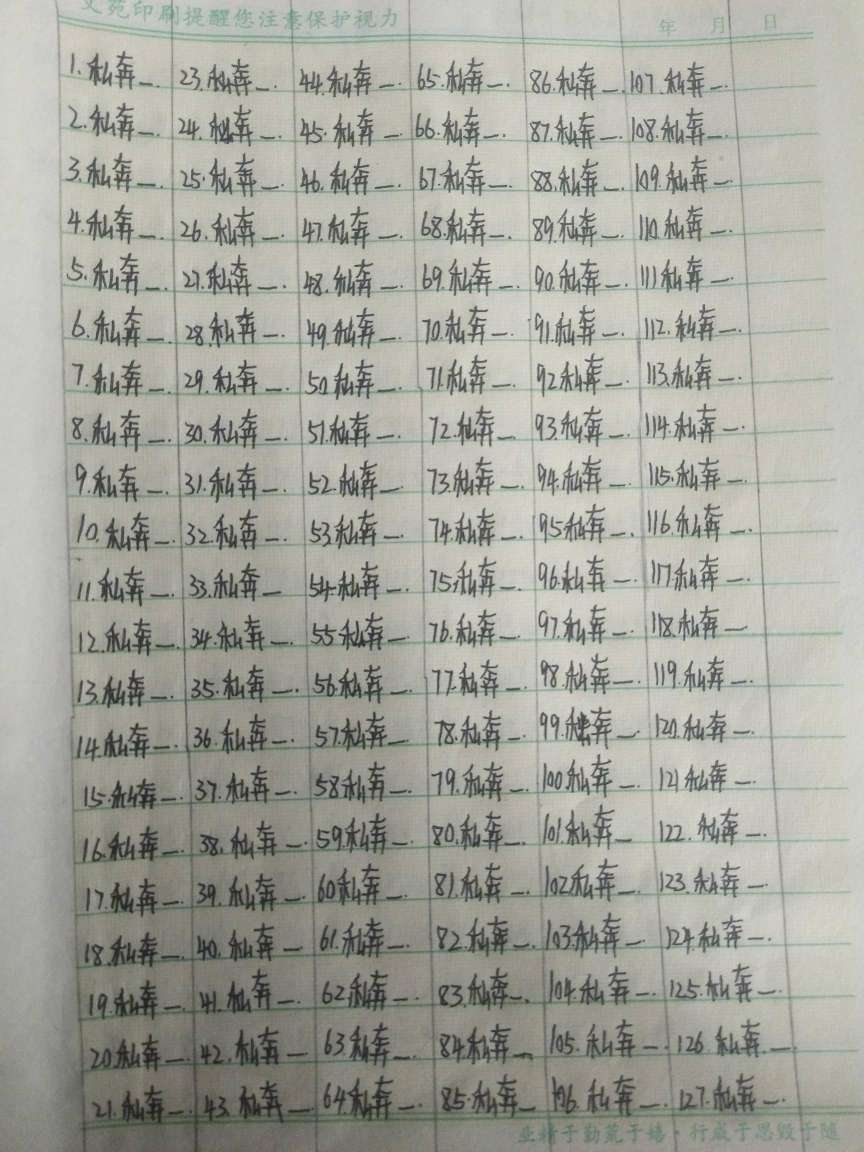 文苑印刷提醒您注意保护视力
年 月 日
1.私奔一.
2.私奔一.
3.私奔一.
4.私奔一.
5.私奔一.
6.私奔一.
7.私奔一.
8.私奔一.
9.私奔一.
10.私奔一.
11.私奔一.
12.私奔一.
13.私奔一.
14.私奔一.
15.私奔一.
16.私奔一.
17.私奔一.
18.私奔一.
19.私奔一.
20.私奔一.
21.私奔一.
23.私奔一.
24.私奔一.
25.私奔一.
26.私奔一.
27.私奔一.
28.私奔一.
29.私奔一.
30.私奔一.
31.私奔一.
32.私奔一.
33.私奔一
34.私奔一.
35.私奔一.
36.私奔一.
37.私奔一.
38.私奔一.
39.私奔一.
40.私奔一.
41.私奔一.
42.私奔一
43.私奔一
44.私奔一.
45.私奔一.
46.私奔一.
47.私奔一.
48.私奔一.
49.私奔一.
50.私奔一.
51.私奔一.
52.私奔一.
53.私奔一.
54.私奔一.
55.私奔一.
56.私奔一.
57.私奔一.
58.私奔一.
59.私奔一.
60.私奔一.
61.私奔一.
62.私奔一.
63.私奔一.
64.私奔一.
65.私奔一.
66.私奔一.
67.私奔一.
68.私奔一.
69.私奔一.
70.私奔一.
71.私奔一.
72.私奔一
73.私奔一.
74.私奔一.
75.私奔一.
76.私奔一.
77.私奔一.
78.私奔一.
79.私奔一.
80.私奔一.
81.私奔一.
82.私奔一.
83.私奔一.
84.私奔一
85.私奔一
86.私奔一.
87.私奔一.
88.私奔一.
89.私奔一.
90.私奔一.
91.私奔一.
92.私奔一.
93.私奔一.
94.私奔一.
95.私奔一.
96.私奔一.
97.私奔一.
98.私奔一.
99.私奔一.
100.私奔一.
101.私奔一
102.私奔一.
103.私奔一.
104.私奔一.
105.私奔一.
106.私奔一.
107.私奔一.
108.私奔一.
109.私奔一.
110.私奔一.
111.私奔一.
112.私奔一.
113.私奔一.
114.私奔一.
115.私奔一.
116.私奔一.
117.私奔一.
118.私奔一.
119.私奔一.
120.私奔一.
121.私奔一.
122.私奔一.
123.私奔一.
124.私奔一.
125.私奔一.
126.私奔一.
127.私奔一.
业精于勤荒于嬉·行成于思毁于随